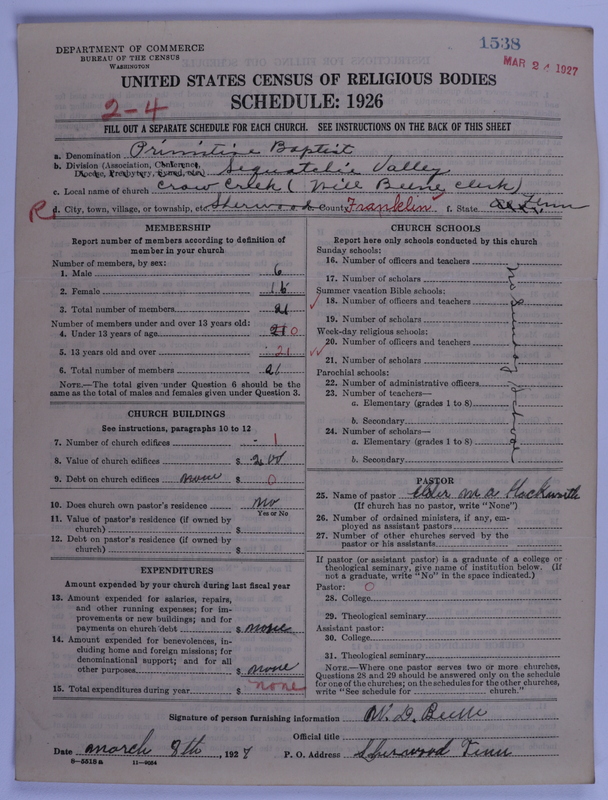 1538
MAR 24 1927
DEPARTMENT OF COMMERCE
BUREAU OF THE CENSUS
WASHINGTON
UNITED STATES CENSUS OF RELIGIOUS BODIES
SCHEDULE: 1926
2-4
FILL OUT A SEPARATE SCHEDULE FOR EACH CHURCH. SEE INSTRUCTIONS ON THE BACK OF THIS SHEET
a. Denomination Primitive Baptist
b. Division (Association, Conference, Diocese, Presbytery, Synod, etc.) Sequatchie Valley
c. Local name of church Crow Creek (Will Beene clerk)
R d. City, town, village, or township, etc. Sherwood County Franklin f. State Tenn
MEMBERSHIP
Report number of members according to definition of member in your church
Number of members, by sex:
1. Male 6
2. Female 15
3. Total number of members 21
Number of members under and over 13 years old:
4. Under 13 years of age 0
5. 13 years old and over 21
6. Total number of members 21
NOTE.—The total given under Question 6 should be the same as the total of males and females given under Question 3.
CHURCH BUILDINGS
See instructions, paragraphs 10 to 12
7. Number of church edifices 1
8. Value of church edifices $ 200
9. Debt on church edifices none $ 0
10. Does church own pastor's residence No
Yes or No
11. Value of pastor's residence (if owned by church) $
12. Debt on pastor's residence (if owned by church) $
EXPENDITURES
Amount expended by your church during last fiscal year
13. Amount expended for salaries, repairs, and other running expenses; for improvements or new buildings; and for payments on church debt $ none
14. Amount expended for benevolences, including home and foreign missions; for denominational support; and for all other purposes $ none
15. Total expenditures during year $ none
CHURCH SCHOOLS
Report here only schools conducted by this church
Sunday schools:
16. Number of officers and teachers
17. Number of scholars
Summer vacation Bible schools:
18. Number of officers and teachers
19. Number of scholars
Week-day religious schools:
20. Number of officers and teachers
21. Number of scholars
Parochial schools:
22. Number of administrative officers
23. Number of teachers—
a. Elementary (grades 1 to 8)
b. Secondary
24. Number of scholars—
a. Elementary (grades 1 to 8)
b. Secondary
No Sunday School
PASTOR
25. Name of pastor Elder M A Hackworth
(If church has no pastor, write "None")
26. Number of ordained ministers, if any, employed as assistant pastors
27. Number of other churches served by the pastor or his assistants
If pastor (or assistant pastor) is a graduate of a college or theological seminary, give name of institution below. (If not a graduate, write "No" in the space indicated.)
Pastor: 0
28. College
29. Theological seminary
Assistant pastor:
30. College
31. Theological seminary
NOTE.—Where one pastor serves two or more churches, Questions 28 and 29 should be answered only on the schedule for one of the churches; on the schedules for the other churches, write "See schedule for ______ church."
Signature of person furnishing information W. D. Beene
Official title
Date March 8th, 1927
P. O. Address Sherwood Tenn
8-5518 a 11-9064